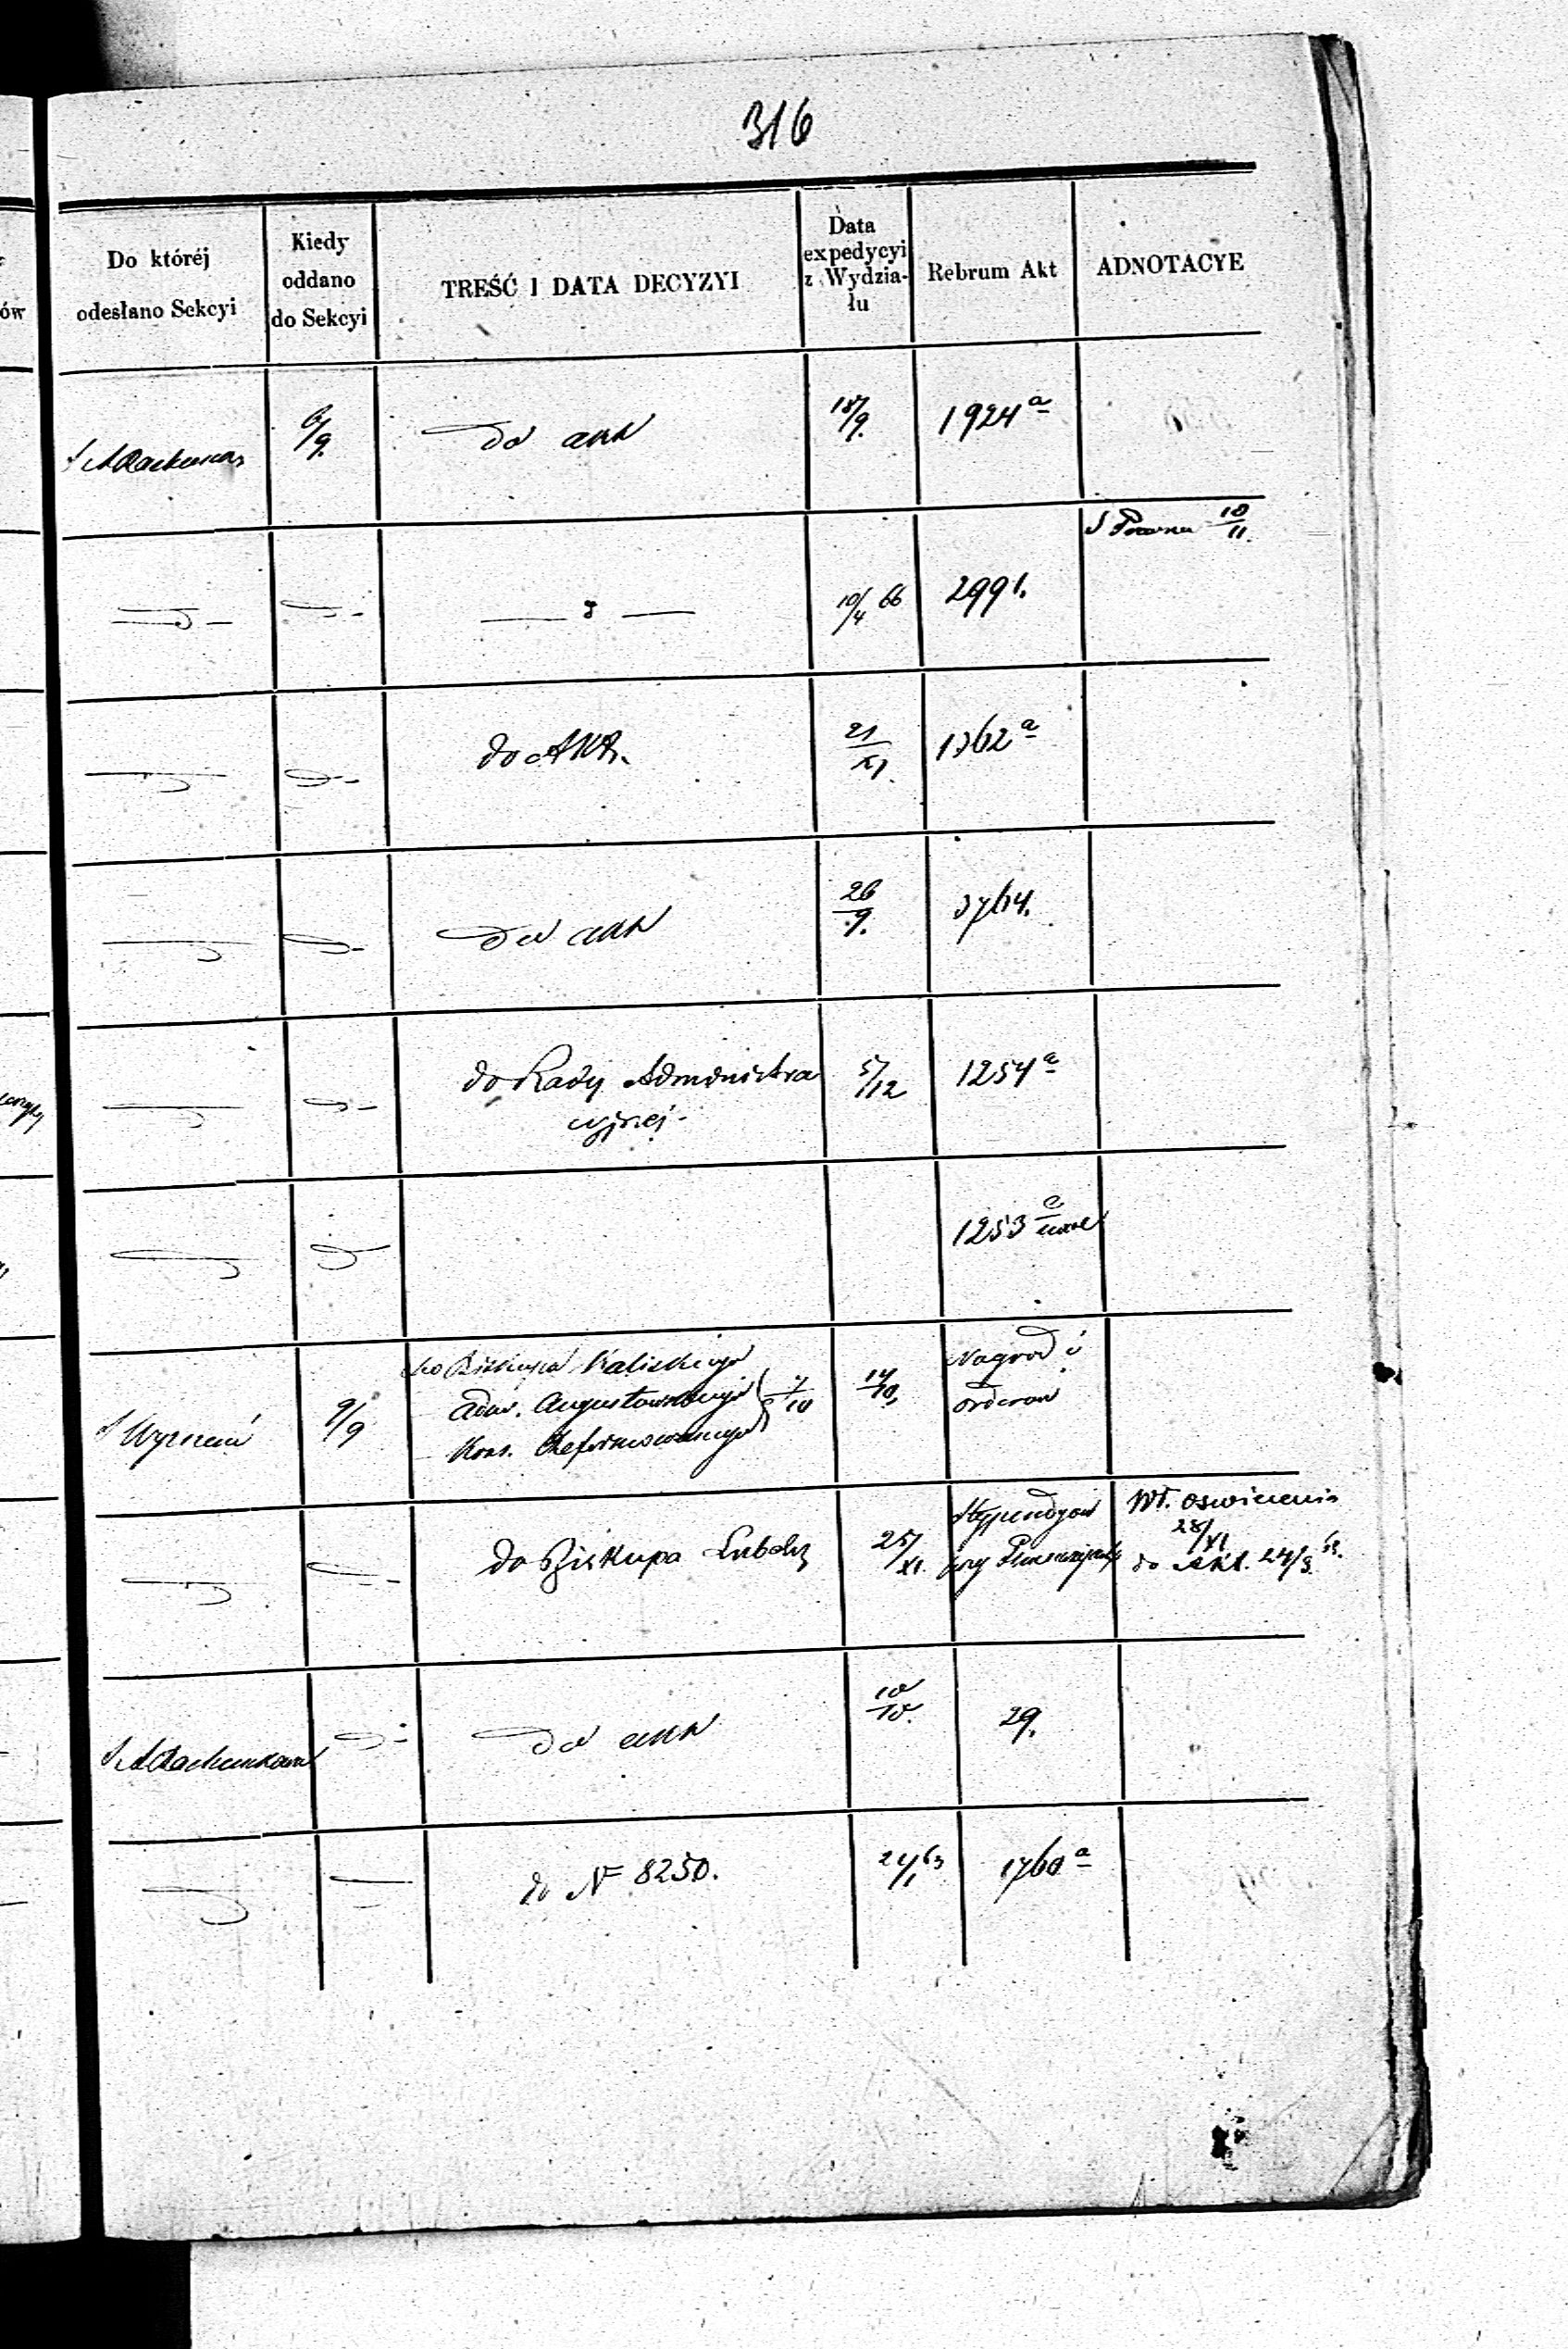 316
Do któréj
odesłano Sekcyi
Kiedy
oddano
do Sekcyi
TREŚĆ I DATA DECYZYI
Data
expedycyi
z Wydzia-
łu
Rebrum Akt
ADNOTACYE
6/9.
do akt
18/9.
1924 a
S Prawna 10/11.
10/4 66
2991.
do Akt.
21/XI.
1362 a
do akt
26/9.
3764.
do Rady Administra
cyjnej.
5/12
1254 a
1253 a
S Wyznań
9/9
do Biskupa Kaliskiego
Adm. Augustowskiego
Kons. Reformowanego
7/10
14/10.
Nagrod i
orderow
do Biskupa Lubels
25/XI.
Stypendyow
przy
Wł. Oswiecenia
28/XI
do Akt. 24/9
do akt
10/10.
29.
do N 8250.
24/1 63
1760 a